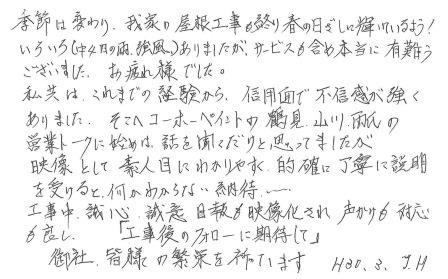 季節は変わり、我家の屋根工事も終り春の日ざしに輝いているよう!
いろいろ(中4月の雨、強風)ありましたが、サービスも含め本当に有難う
ございました。お疲れ様でした。
私共は、これまでの経験から、信用面で不信感が強く
ありました。そこへコーホーペイントの鶴見、山川、両氏の
営業トークに始めは、話を聞くだけと思ってましたが
映像として素人目にわかりやすく、的確に丁寧に説明
を受けると、何かわからない納得、……
工事中、誠心、誠意、日報も映像化され、声かけも対応
も良し、「工事後のフォローに期待して」
御社、皆様の繁栄を祈ています H30.3. J.H